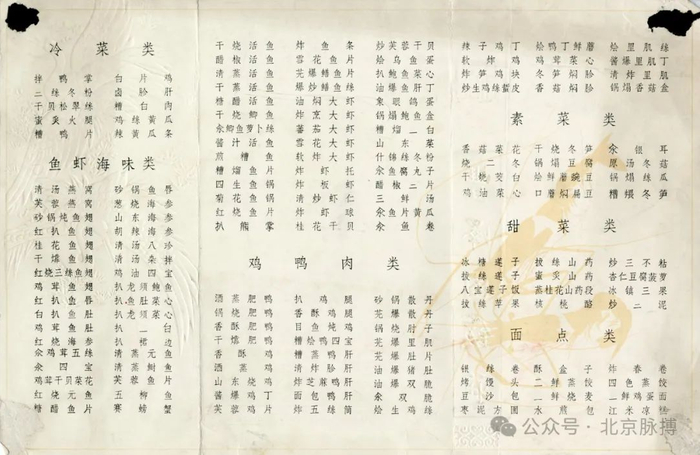 冷菜类
拌鸭掌 白片鸡
二丝冬粉 卤胗肝
干贝松翠丝 糟白肉
蜜炙火腿 鸡丝黄瓜
糟鸭片 辣黄瓜条
鱼虾海味类
清汤燕窝 砂锅鱼唇
芙蓉燕窝 葱烧海参
砂锅炖鱼翅 山东海参
红扒鱼翅 胡辣海参
桂花鱼翅 清汤八珍
干㸆鱼翅 清汤三丝
红烧三丝鱼翅 鸡油四宝
鸡茸鱼翅 扒鱼鲍菜
红扒鱼唇 扒龙须
红扒鱼肚 扒鱼龙须
鸡茸鱼肚 扒三白
红烧海参 扒裙边
氽鸡茸五丝 清蒸元鱼
氽四宝 清蒸鲥鱼
鸡茸干贝菜花 芙蓉鱼片
红烧元鱼 五柳鱼
糖醋鱼片 赛螃蟹
干烧活鱼 炸鱼条 炒芙蓉干贝
醋椒活鱼 雪花鱼片 烩乌鱼蛋
清蒸活鱼 芫爆鳝鱼片 扒鲍鱼菜心
糖醋活鱼 油爆鳝鱼丝 油爆鱼肝丁
干烧鲫鱼 油焖大虾 象眼鸽蛋
氽鲫鱼萝卜丝 炸烹大虾 锅塌鲍鱼盒
酱汁活鱼 蕃茄大虾 糟熘三白
煎糟鱼 雪花大虾 山东菜
糟熘鱼片 软炸大虾 什锦冬粉
四生鱼锅 炸虾托 氽鱼腐丸子
菊花鱼锅 炸板虾 醋椒三片
红烧鱼片 清炒虾仁 三鲜汤
扒熊掌 炸虾球 氽鱼片黄瓜
炸桂花虾 氽鱼卷
鸡鸭肉类
酒蒸肥鸭 扒鸡腿 砂锅散丹
锅烧肥鸭 香酥鸡腿 芫爆散丹
香酥肥鸭 目鱼炖鸡 锅烧肘子
干㸆肥鸭 糟烩鸭四宝 芫爆里肌
香酥鸡 香蒸鸭肝 芫爆肚片
酒蒸鸡 清炸鸭肝 油爆猪肚
山东烧鸡 炸芝麻鸭肝 油爆双脆
酱爆鸡丁 面包鸭肝 氽双脆
芙蓉鸡片 炸五丝筒 生炒鸡丝
辣子鸡丁 烩鸭丁鲜蘑 烩里肌丝
软炸鸡 鸡茸菜心 酱爆肉丁
炸笋鸡块 冬笋焖胗 清炸里肌
炒生鸡丝蜇皮 香菇焖胗 锅塌香菇盒
素菜类
香菇菜花 干烧冬笋 氽银耳
烧二冬 锅塌豆腐 原汤冬菇
干烧茭白 烩鲜蘑豌豆 锅塌丝瓜
鸡油菜心 口蘑焖扁豆 糟煨冬笋
甜菜类
冰糖莲子 拔丝山药 炒三不粘
拔丝莲子 蜜炙山药 杏仁豆腐菠萝
八宝莲子饭 蒸桂花山药段 冰镇三果
拔丝苹果 核桃酪 炒三泥
面点类
银丝卷 酥盒子 炸春卷
烤馒头 三鲜蒸饺 四色蒸饺
豆沙包 三鲜烧麦 三鲜鸡蛋面
枣泥方圃 水煎包 江米凉糕
公众号·北京脉搏